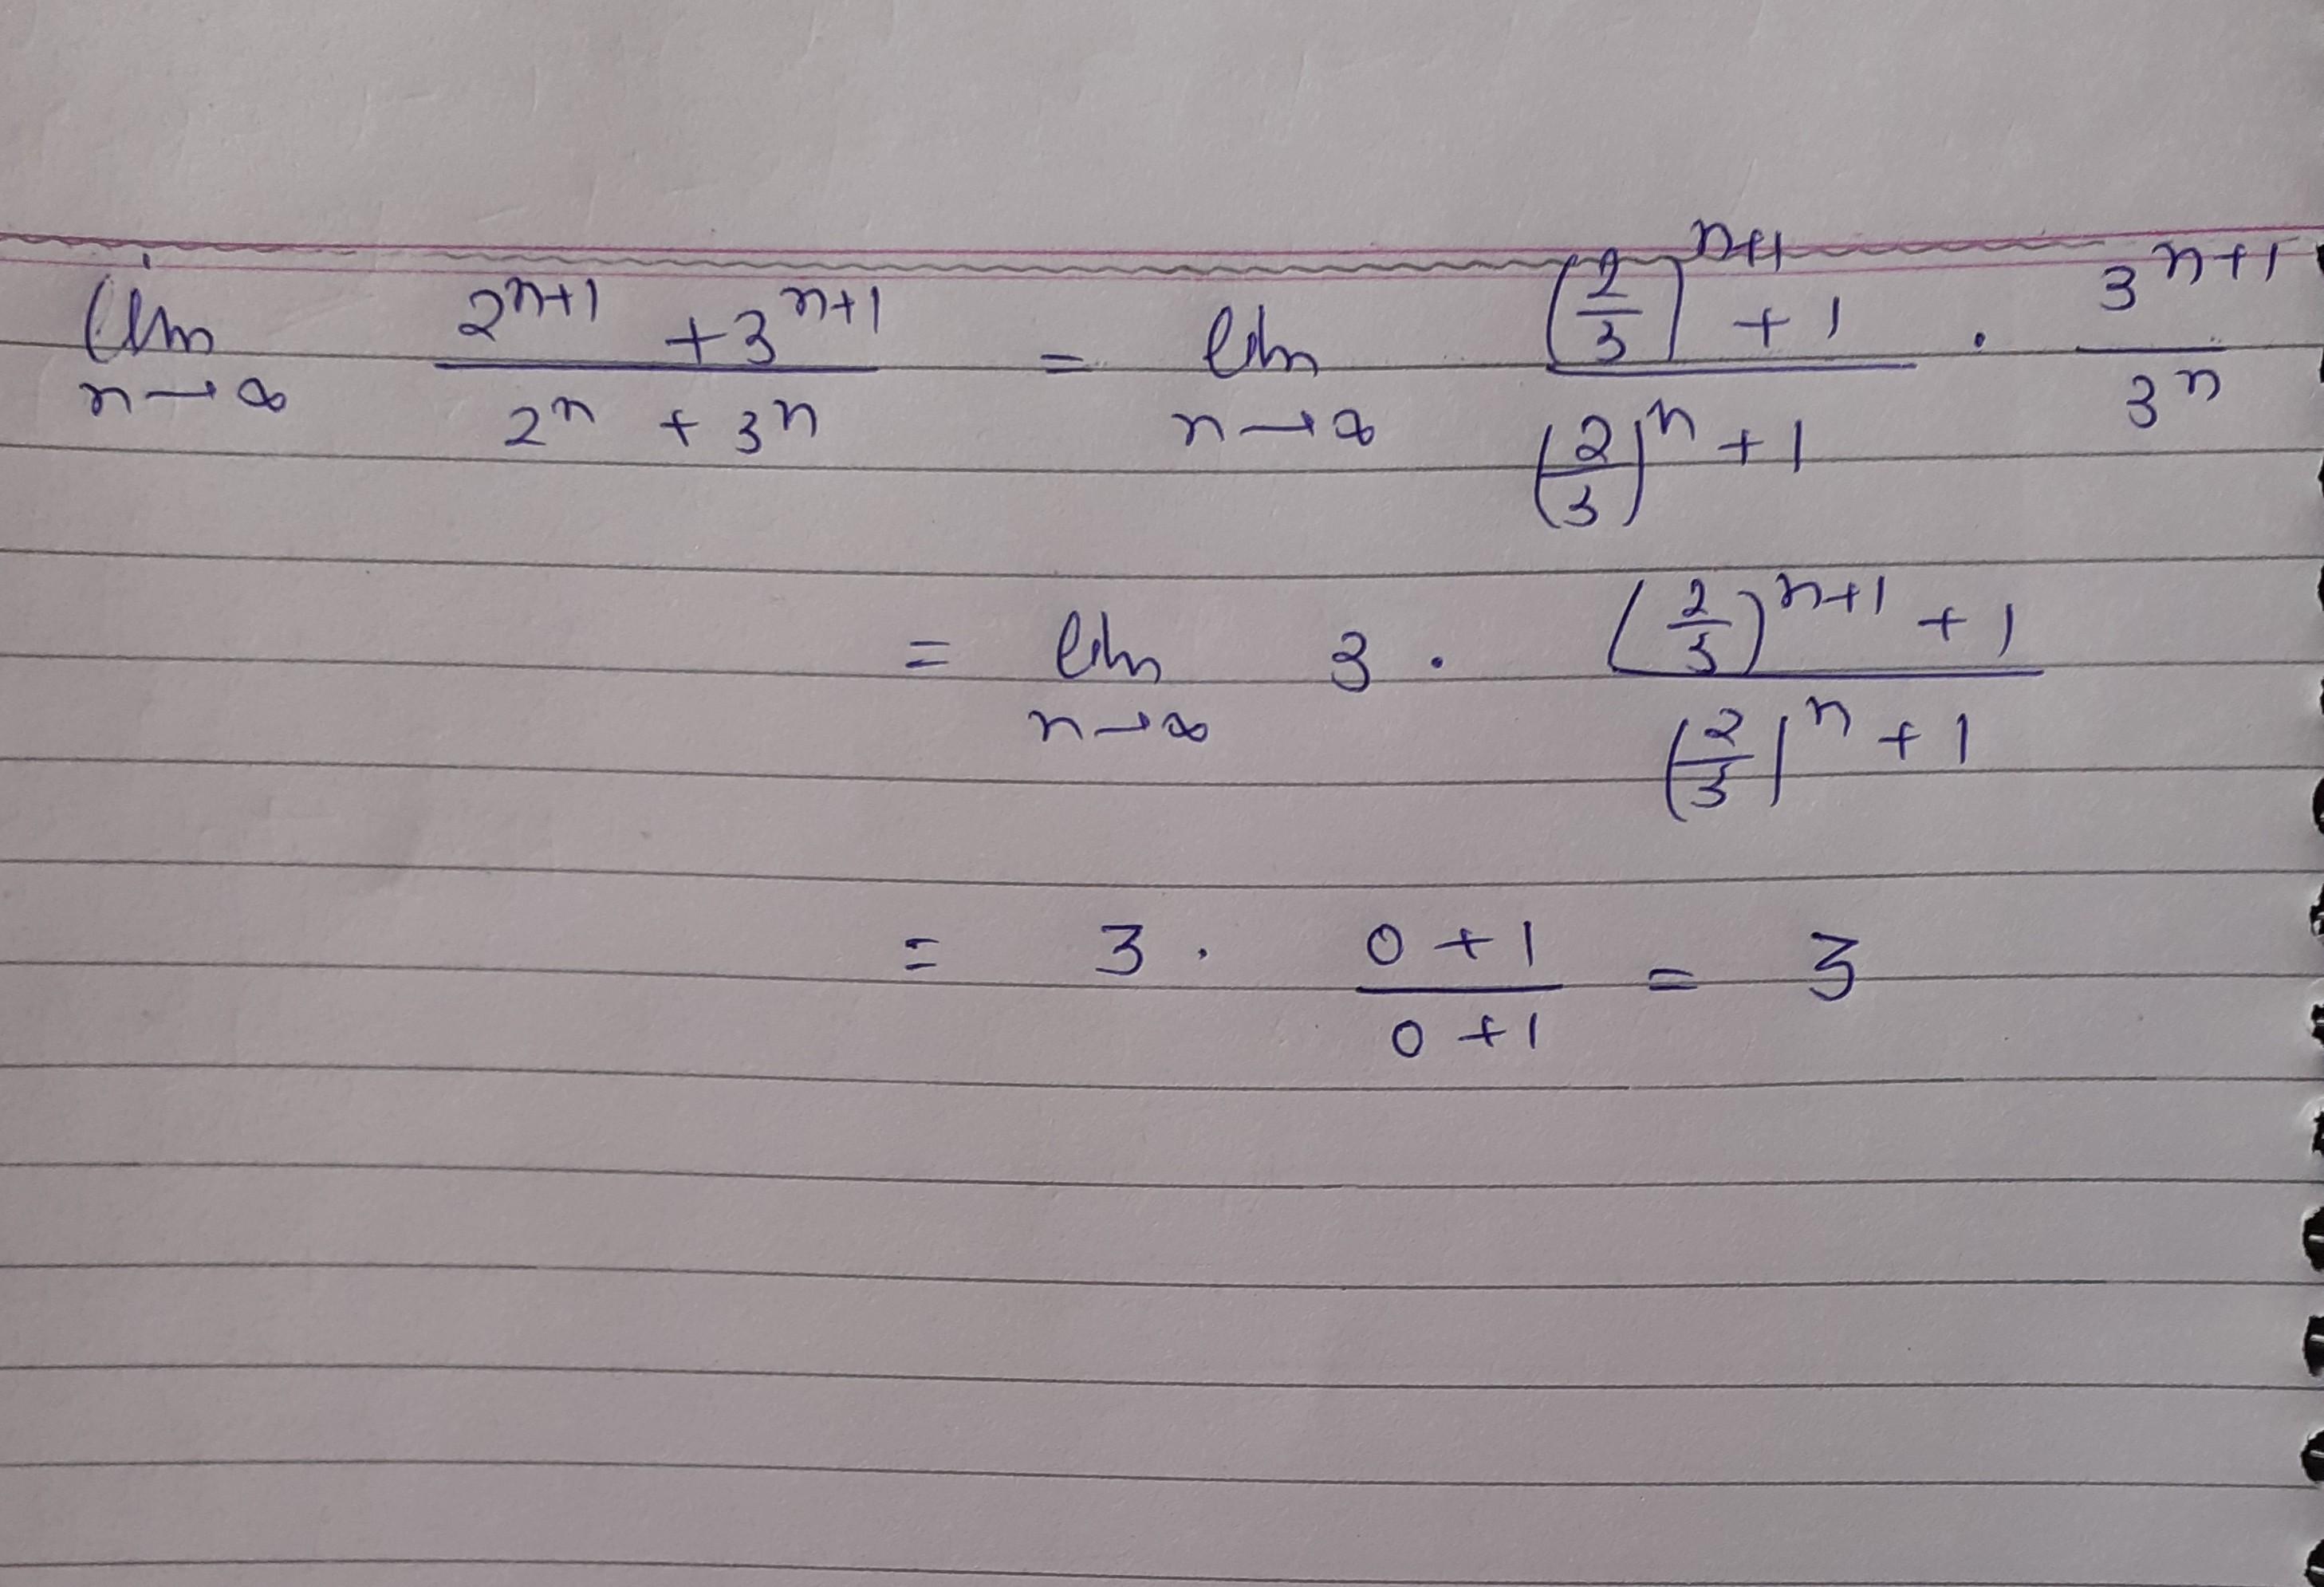 lim n→∞ (2^(n+1) + 3^(n+1)) / (2^n + 3^n) = lim n→∞ ((2/3)^(n+1) + 1) / ((2/3)^n + 1) · 3^(n+1) / 3^n
= lim n→∞ 3 · ((2/3)^(n+1) + 1) / ((2/3)^n + 1)
= 3 · (0 + 1) / (0 + 1) = 3